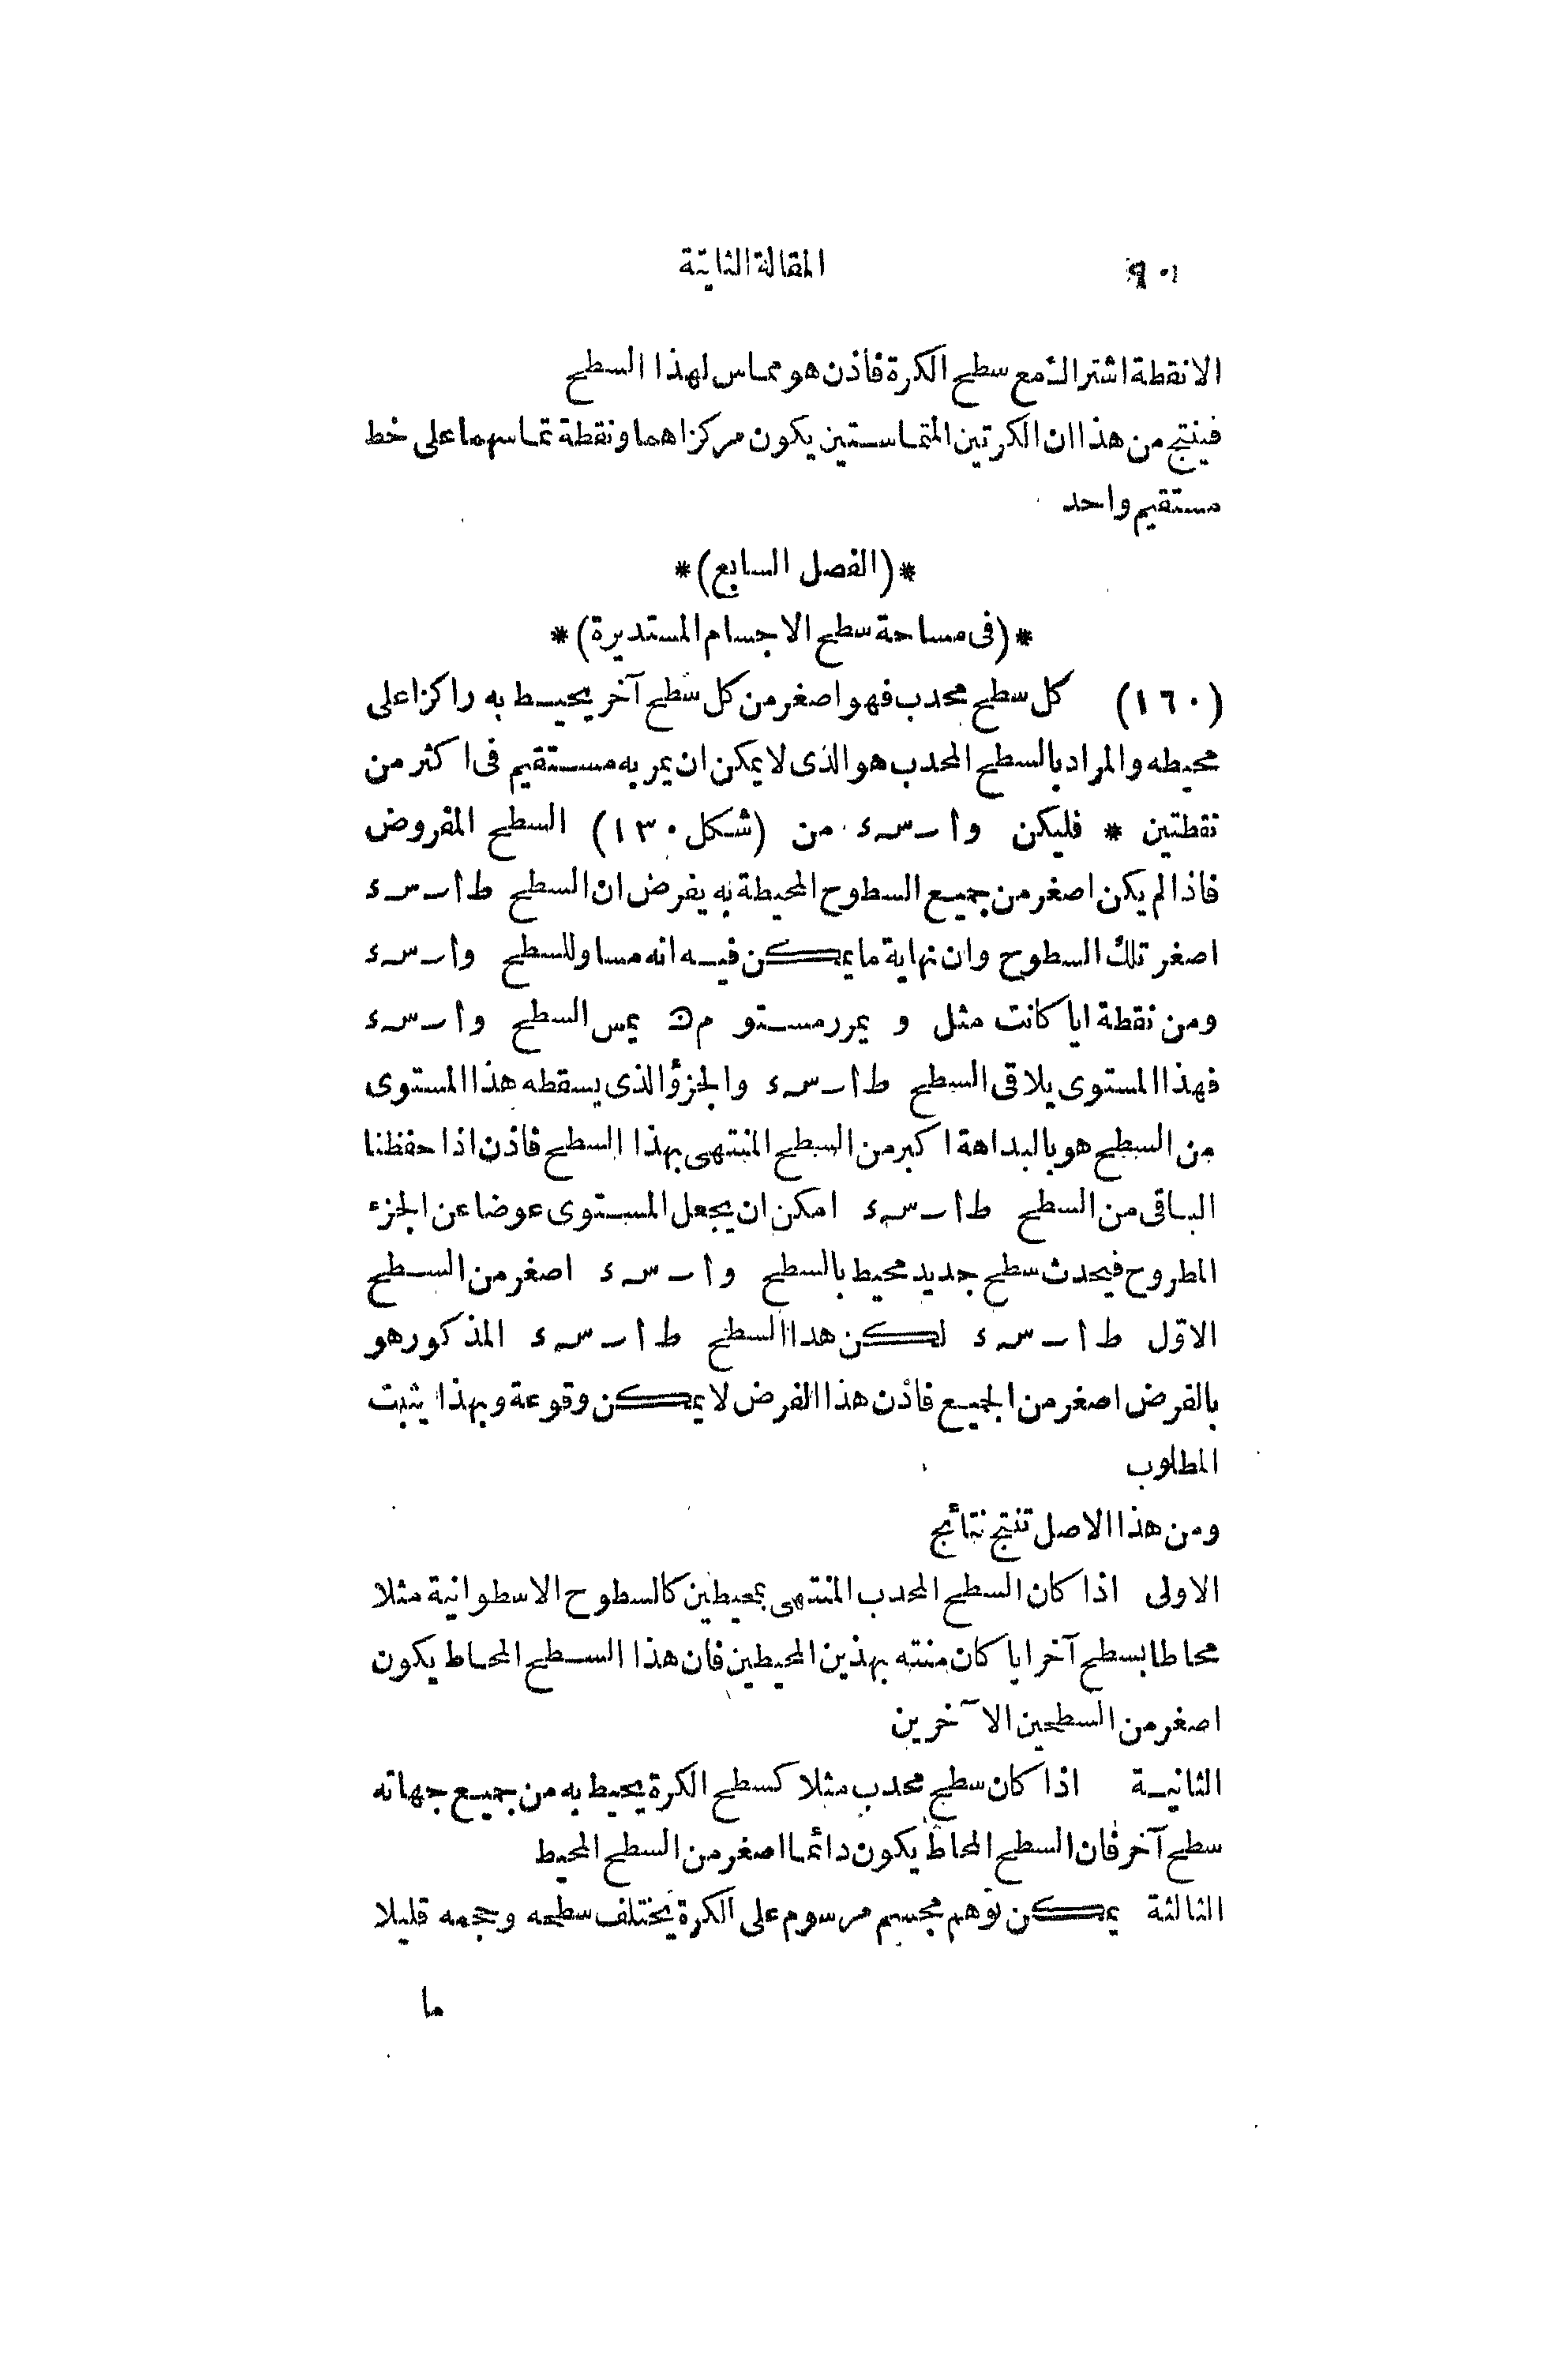 ١٠٩ المقالة الثانية
الا نقطة اشتراك مع سطح الكرة فاذن هو مماس لهذا السطح
فينتج من هذا ان الكرتين المتماستين يكون مركزاهما ونقطة تماسهما على خط
مستقيم واحد
*(الفصل السابع)*
*(فى مساحة سطح الاجسام المستديرة)*
(١٦٠) كل سطح محدب فهو اصغر من كل سطح آخر يحيط به راكزا على
محيطه والمراد بالسطح المحدب هو الذى لا يمكن ان يمر به مستقيم فى اكثر من
نقطتين * فليكن و ا ب س ء من (شكل ١٣٠) السطح المفروض
فاذا لم يكن اصغر من جميع السطوح المحيطة به يفرض ان السطح ط ا ب س ء
اصغر تلك السطوح وان نهاية ما يمكن فيه انه مساو للسطح و ا ب س ء
ومن نقطة ايا كانت مثل و يمرر مستو م ن يمس السطح و ا ب س ء
فهذا المستوى يلاقى السطح ط ا ب س ء والجزؤ الذى يسقطه هذا المستوى
من السطح هو بالبداهة اكبر من السطح المنتهى بهذا السطح فاذن اذا حفظنا
الباقى من السطح ط ا ب س ء امكن ان يجعل المستوى عوضا عن الجزء
المطروح فيحدث سطح جديد محيط بالسطح و ا ب س ء اصغر من السطح
الاوّل ط ا ب س ء لكن هدا السطح ط ا ب س ء المذكور هو
بالفرض اصغر من الجميع فاذن هذا الفرض لا يمكن وقوعة وبهذا يثبت
المطلوب
ومن هذا الاصل تنتج نتائج
الاولى اذا كان السطح المحدب المنتهى بمحيطين كالسطوح الاسطوانية مثلا
محاطا بسطح آخر ايا كان منته بهذين المحيطين فان هذا السطح المحاط يكون
اصغر من السطحين الآخرين
الثانية اذا كان سطح محدب مثلا كسطح الكرة يحيط به من جميع جهاته
سطح آخر فان السطح المحاط يكون دائما اصغر من السطح المحيط
الثالثة يمكن توهم مجسم مرسوم على الكرة يختلف سطحه وحجمه قليلا
ما